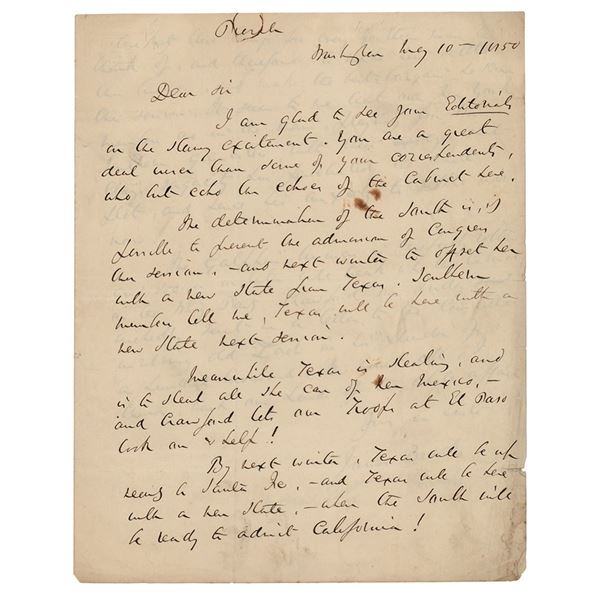 Private
Washington May 10 - 1850
Dear Sir
I am glad to see your Editorials
on the slavery excitement. You are a great
deal wiser than some of your correspondents,
who but echo the echoes of the Cabinet here.
The determination of the South is, if
possible to prevent the admission of
this session, - and next winter to offset her
with a new State from Texas. Southern
members tell me, Texas will be here with a
new State next session.
Meanwhile Texas is stealing, and
is to steal all she can of New Mexico, -
and Crawford lets our Troops at El Paso
look on & help!
By next winter, Texas will be up
nearly to Santa Fe, - and Texas will be here
with a new State, - when the South will
be ready to admit California!